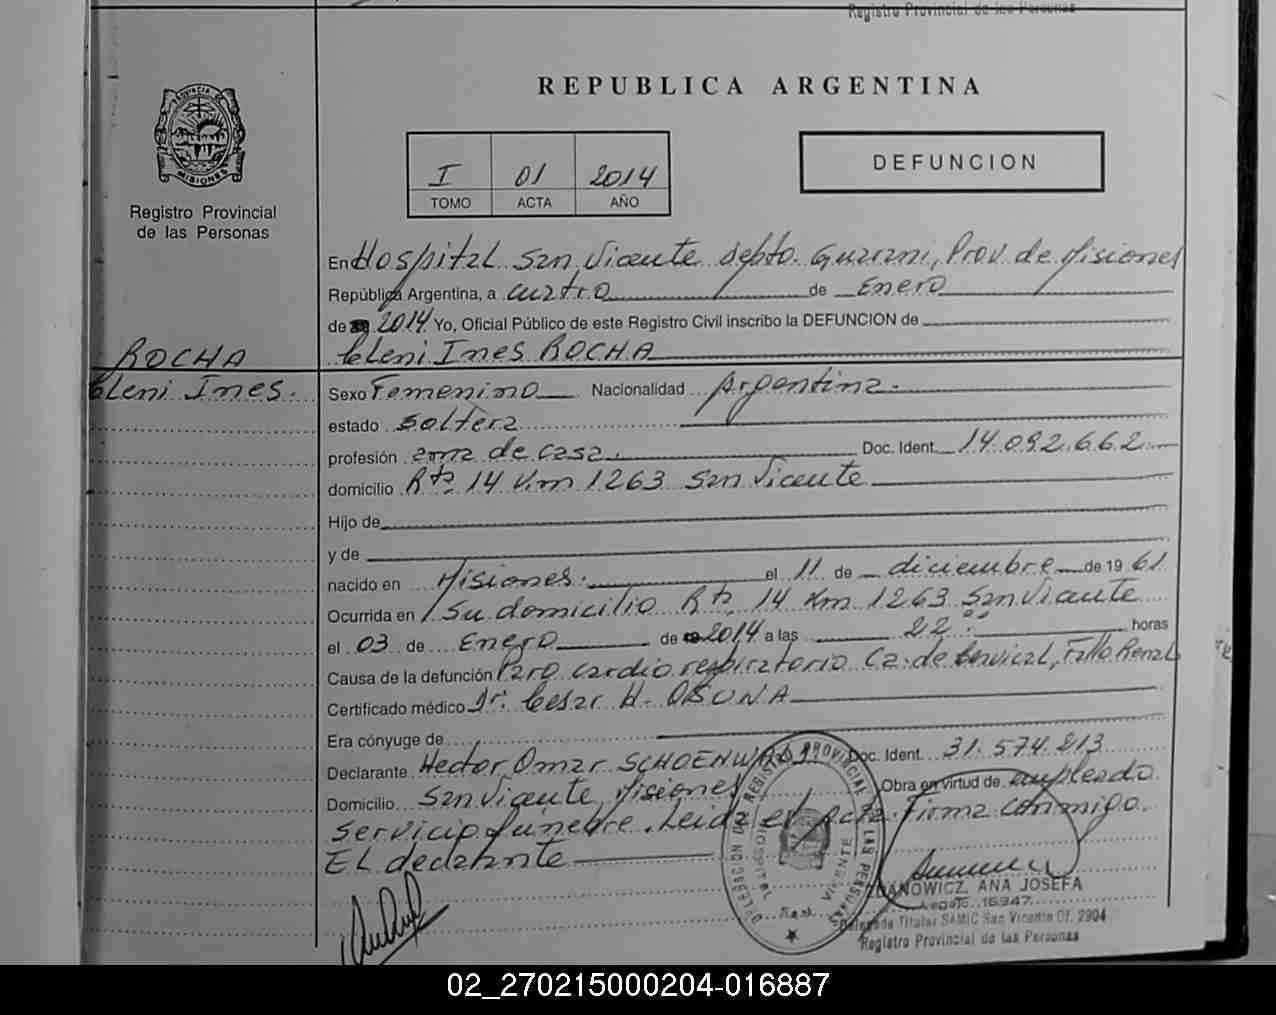 Registro Provincial de las Personas
REPUBLICA ARGENTINA
PROVINCIA DE
MISIONES
Registro Provincial
de las Personas
I 01 2014
TOMO ACTA AÑO
DEFUNCION
En Hospital San Vicente depto. Guarani, Prov. de Misiones
República Argentina, a cuatro de Enero
de 2014 Yo, Oficial Público de este Registro Civil inscribo la DEFUNCION de
Cleni Ines ROCHA
ROCHA
Cleni Ines.
Sexo Femenino Nacionalidad Argentina.
estado Soltera
profesión ama de casa. Doc. Ident. 14.092.662
domicilio Rta. 14 Km 1263 San Vicente
Hijo de
y de
nacido en Misiones. el 11 de diciembre de 19 61
Ocurrida en Su domicilio Rta. 14 Km 1263 San Vicente
el 03 de Enero de 2014 a las 22: horas
Causa de la defunción Paro cardio respiratorio Ca. de Cervical, Fallo Renal
Certificado médico Dr. Cesar H. OSUNA
Era cónyuge de
Declarante Hector Omar Doc. Ident. 31.574.213
Domicilio San Vicente, Misiones Obra en virtud de empleado
Servicio fúnebre. Leida el acta. Firma conmigo.
El declarante
DELEGACION DEL REGISTRO PROVINCIAL DE LAS PERSONAS
VICENTE
ANA JOSEFA
Legajo 16947
Delegada Titular SAMIC San Vicente Of. 2904
Registro Provincial de las Personas
02_270215000204-016887